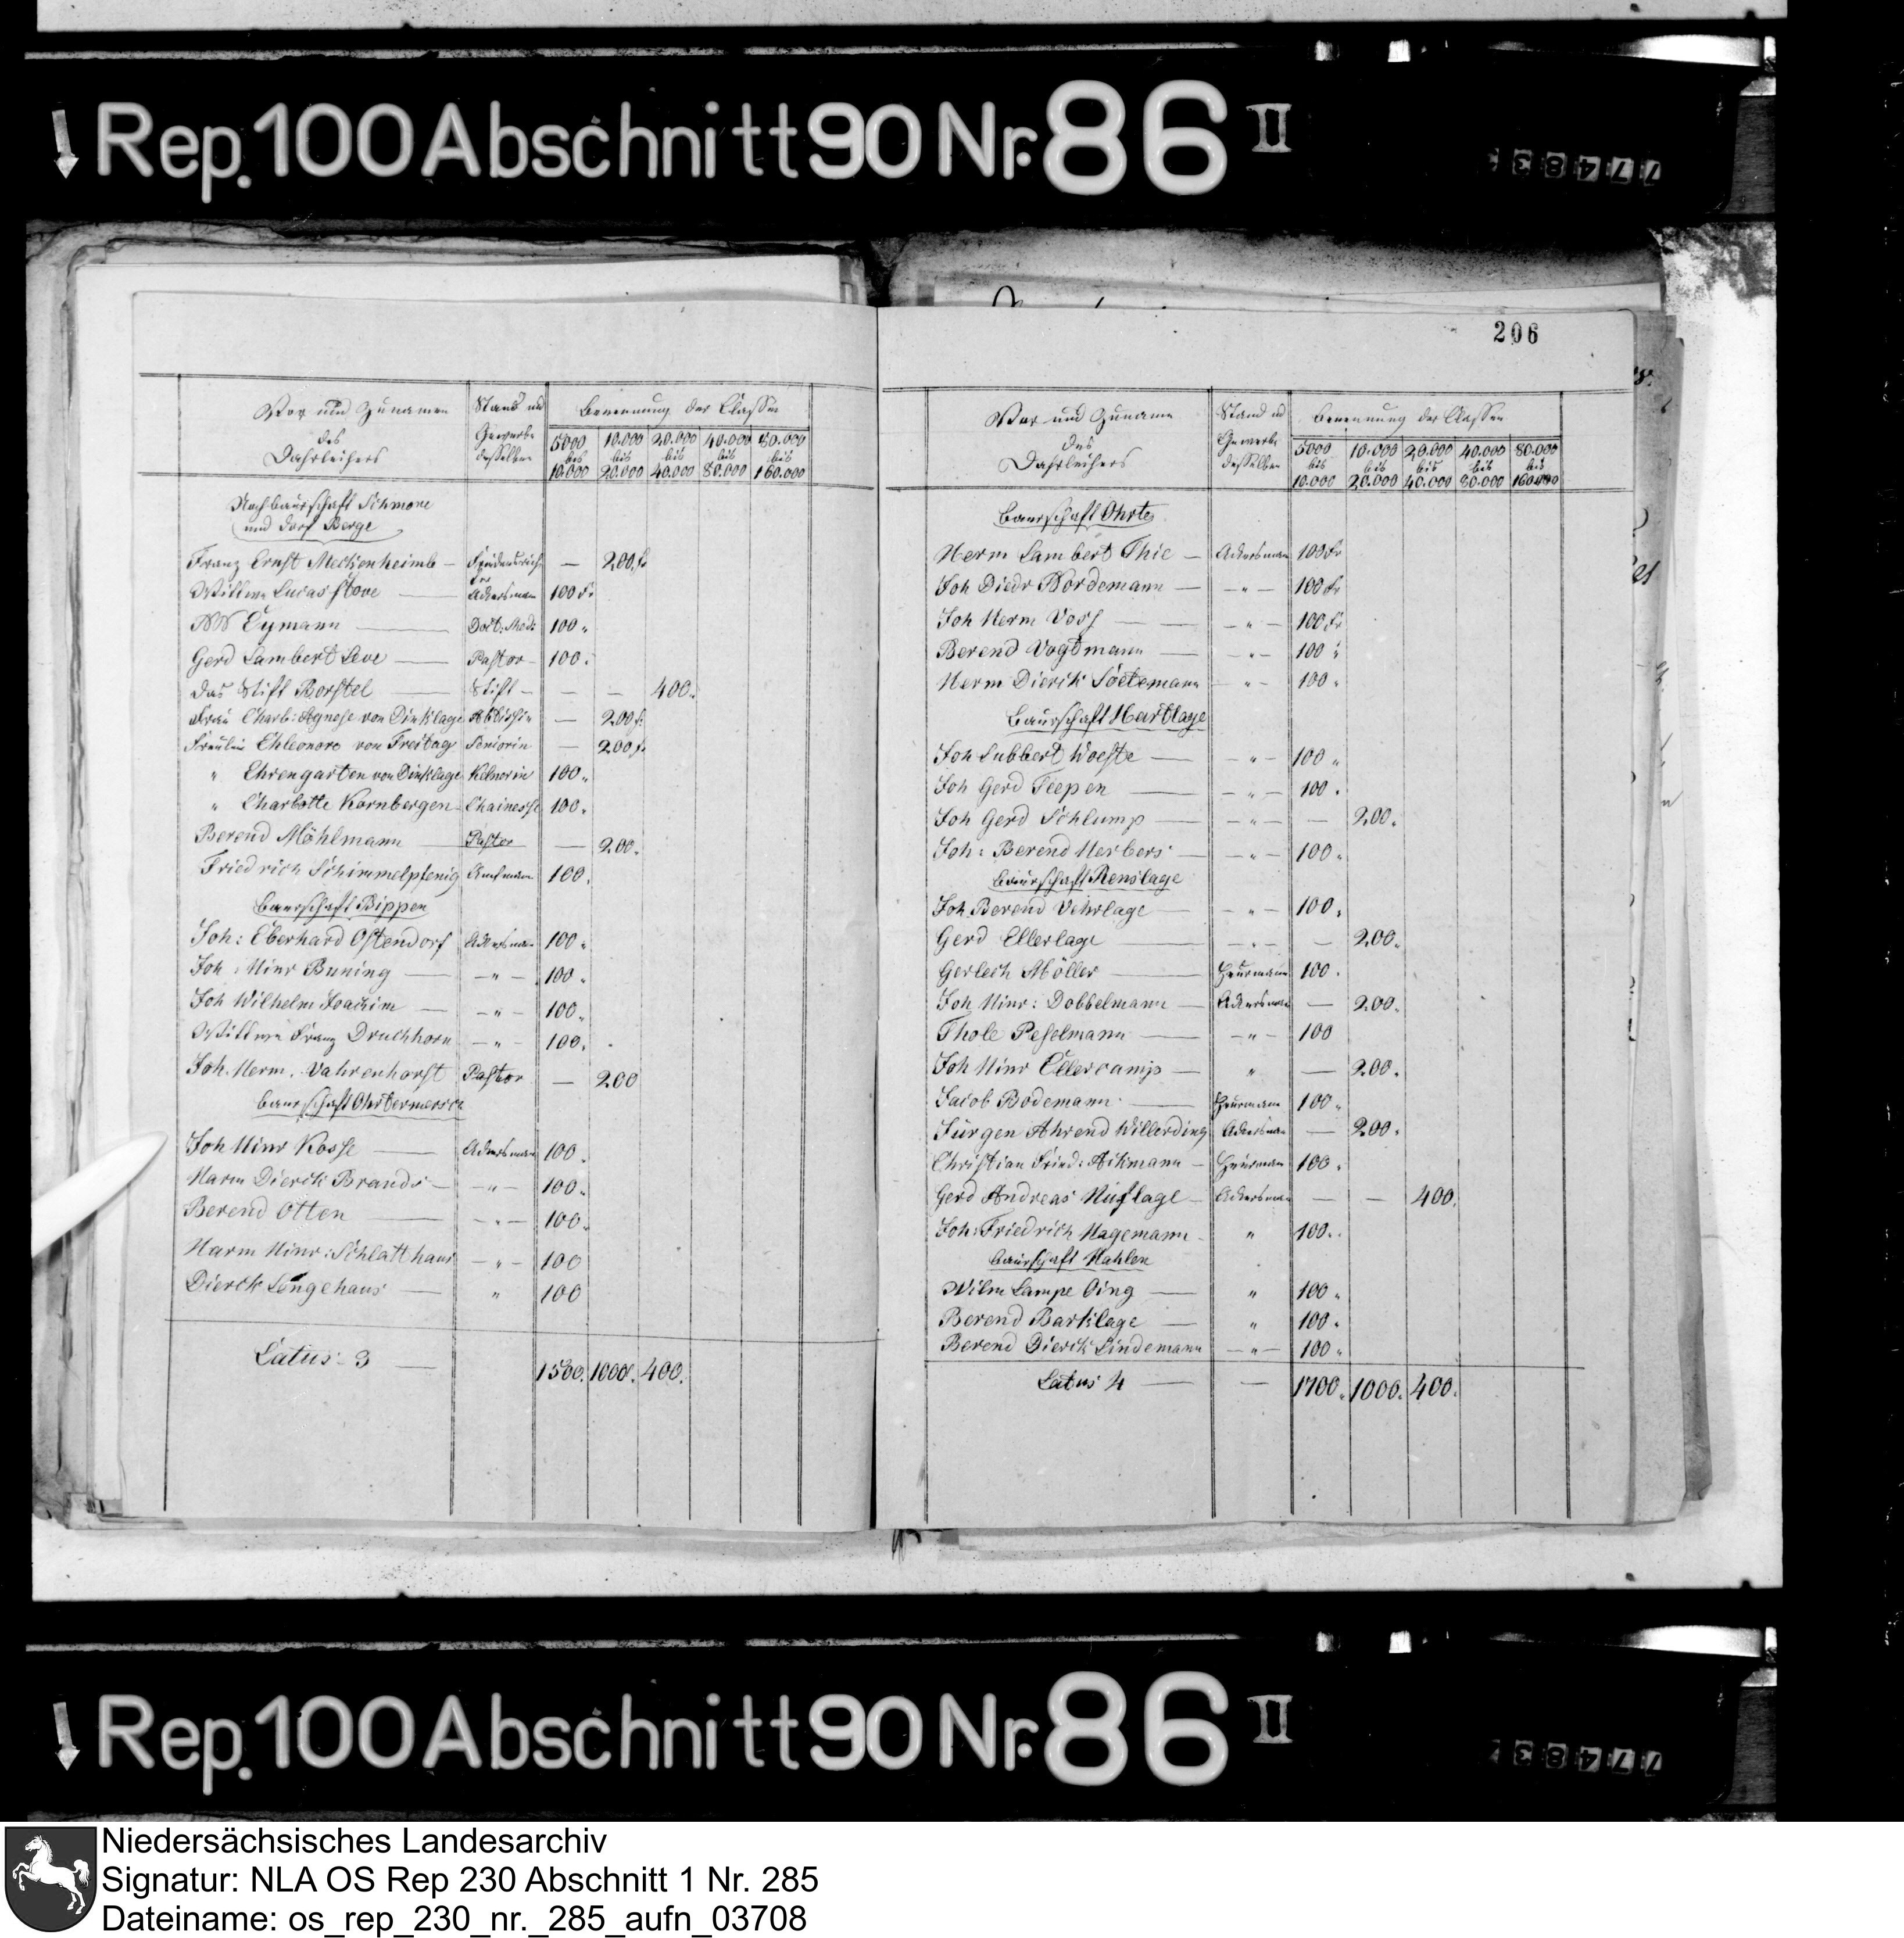 Rep. 100 Abschnitt 90 Nr. 86 II
77483
206
Vor und Zunamen
des
Dahrleihers
Stand und
Gewerbe
desselben
Benennung der Classen
5000 bis 10.000
10.000 bis 20.000
20.000 bis 40.000
40.000 bis 80.000
80.000 bis 160.000
Nachbaurschaft Schmone
und Dorf Berge
Franz Ernst Meckenheimb — Friedensrichter — 200 fr
Wittwe Lucas Stove — Ackersman 100 Fr
NN Eymann — Doct: Med: 100 "
Gerd Lambert Leve — Pastor — 100.
Das Stift Borstel — Stift — — — 400.
Frau Charl: Agnese von Dinklage Abtissin — 200 f.
Fräulin Ehleonore von Freitag Seniorin — 200 f.
" Ehrengarten von Dinklage Kelnerin 100 "
" Charlotte Kornbergen — Chainesse 100.
Berend Möhlmann — Pastor — 200.
Friedrich Schimmelpfenig Amtmann 100.
Baurschaft Bippen
Joh: Eberhard Ostendorf Ackersman 100 "
Joh: Hinr Buning — — " — 100 "
Joh Wilhelm Joachim — — " — 100 "
Wittwe Franz Druchhorn — " — 100.
Joh. Herm. Vahrenhorst Pastor — 200
Baurschaft Ohrtermersch
Joh Hinr Kosse — Ackersman 100.
Harm Dierck Brands — — " — 100 "
Berend Otten — — " — 100.
Harm Hinr: Schlatthaus — " — 100
Dierck Längehaus — " 100
Latus 3 — 1500. 1000. 400.
Vor und Zuname
des
Dahrleihers
Stand und
Gewerbe
desselben
Benennung der Classen
5000 bis 10.000
10.000 bis 20.000
20.000 bis 40.000
40.000 bis 80.000
80.000 bis 160.000
Baurschaft Ohrte
Herm Lambert Thie — Ackersman 100 Fr
Joh Diedr Nordemann — — " — 100 Fr
Joh Herm Voss — — " — 100 Fr
Berend Vogtmann — — " — 100 "
Herm Dierck Söetemann — " — 100 "
Baurschaft Hartlage
Joh Lubbert Woeste — — " — 100 "
Joh Gerd Teepen — — " — 100.
Joh Gerd Schlump — — " — — 200.
Joh: Berend Herbers — — " — 100 "
Baurschaft Renslage
Joh Berend Vehrlage — — " — 100.
Gerd Ellerlage — — " — — 200.
Gerlech Möller — Heurmann 100.
Joh Hinr: Dobbelmann — Ackersman — 200.
Thole Peselmann — — " — 100
Joh Hinr Ellercamp — " — 200.
Jacob Bodemann — Heurmann 100 "
Jürgen Ahrend Willerding Ackersman — 200.
Christian Fried: Aikmann — Heurman 100.
Gerd Andreas Huslage — Ackersman — — 400.
Joh: Friedrich Hagemann — " 100.
Baurschaft Hahlen
Wilm Lampe Oing — " 100 "
Berend Barklage — " 100.
Berend Dierck Lindemann — " — 100 "
Latus 4 — — 1700. 1000. 400.
Rep. 100 Abschnitt 90 Nr. 86 II
77483
Niedersächsisches Landesarchiv
Signatur: NLA OS Rep 230 Abschnitt 1 Nr. 285
Dateiname: os_rep_230_nr._285_aufn_03708